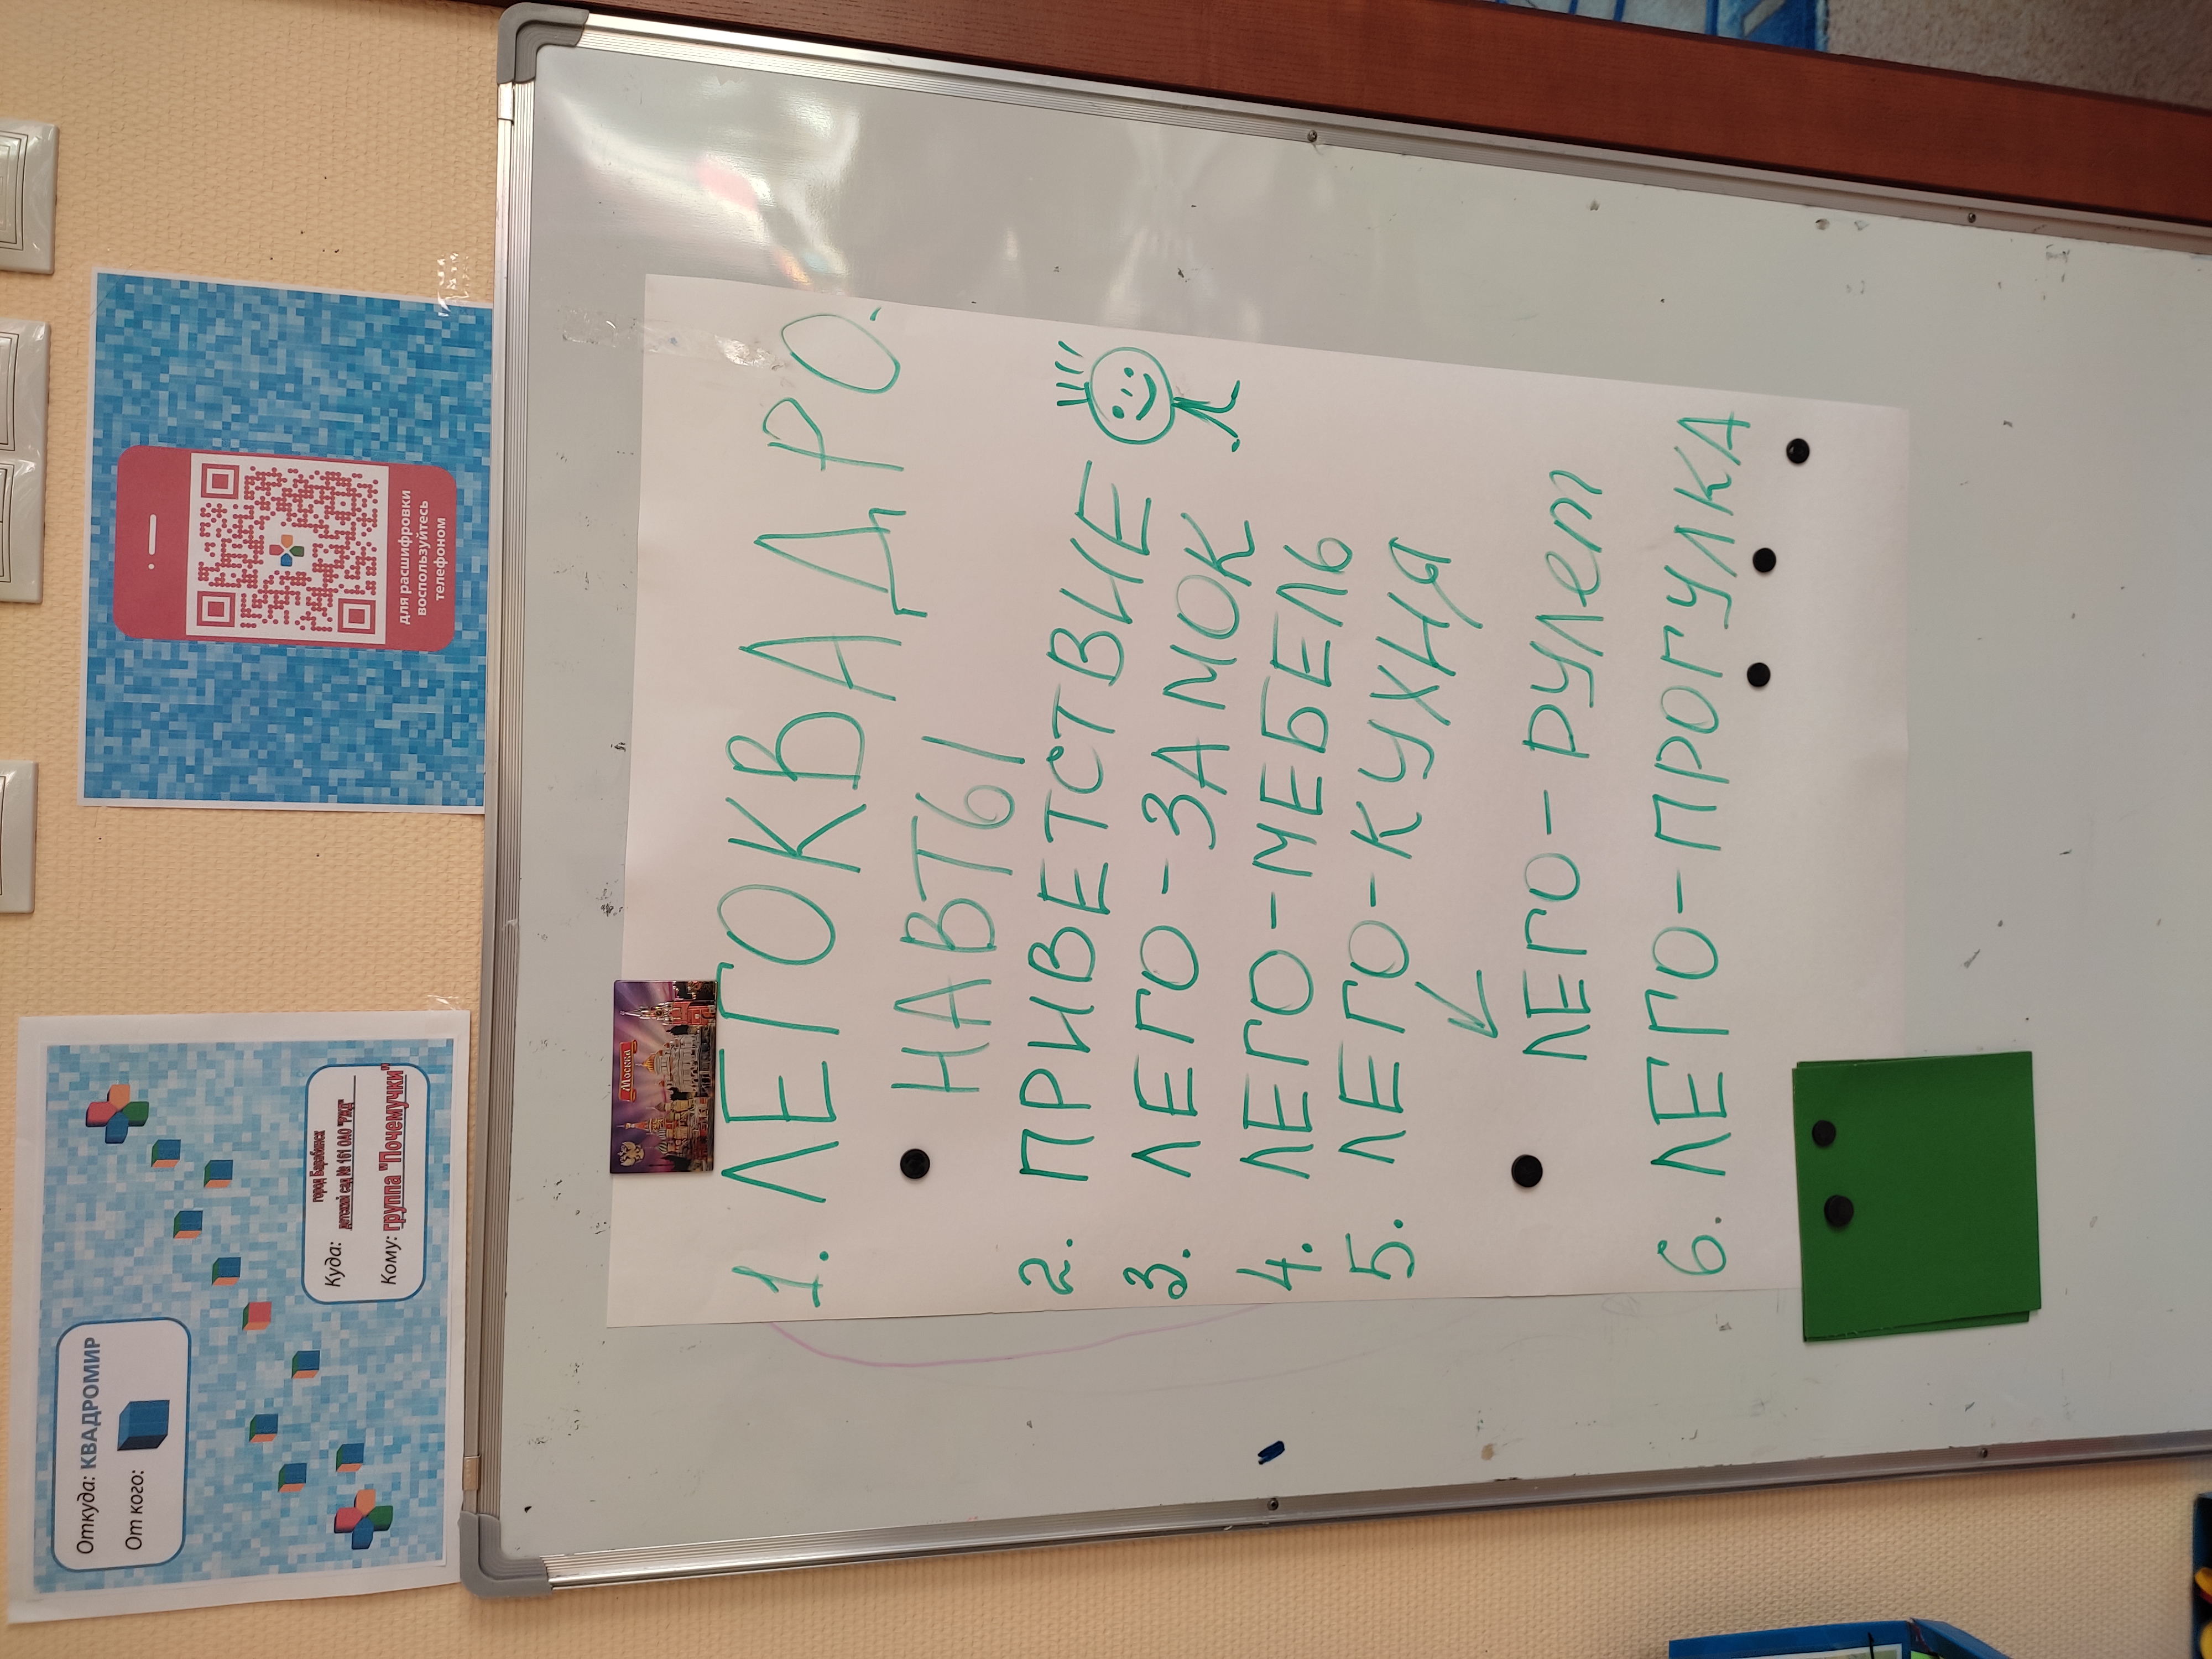 Откуда: КВАДРОМИР
От кого:
Куда: город Барабинск
детский сад № 161 ОАО "РЖД"
Кому: группа "Почемучки"
для расшифровки
воспользуйтесь
телефоном
Москва
1. ЛЕГОКВАДРО-
НАВТЫ
2. ПРИВЕТСТВИЕ
3. ЛЕГО-ЗАМОК
4. ЛЕГО-МЕБЕЛЬ
5. ЛЕГО-КУХНЯ
ЛЕГО-РУЛЕТ
6. ЛЕГО-ПРОГУЛКА